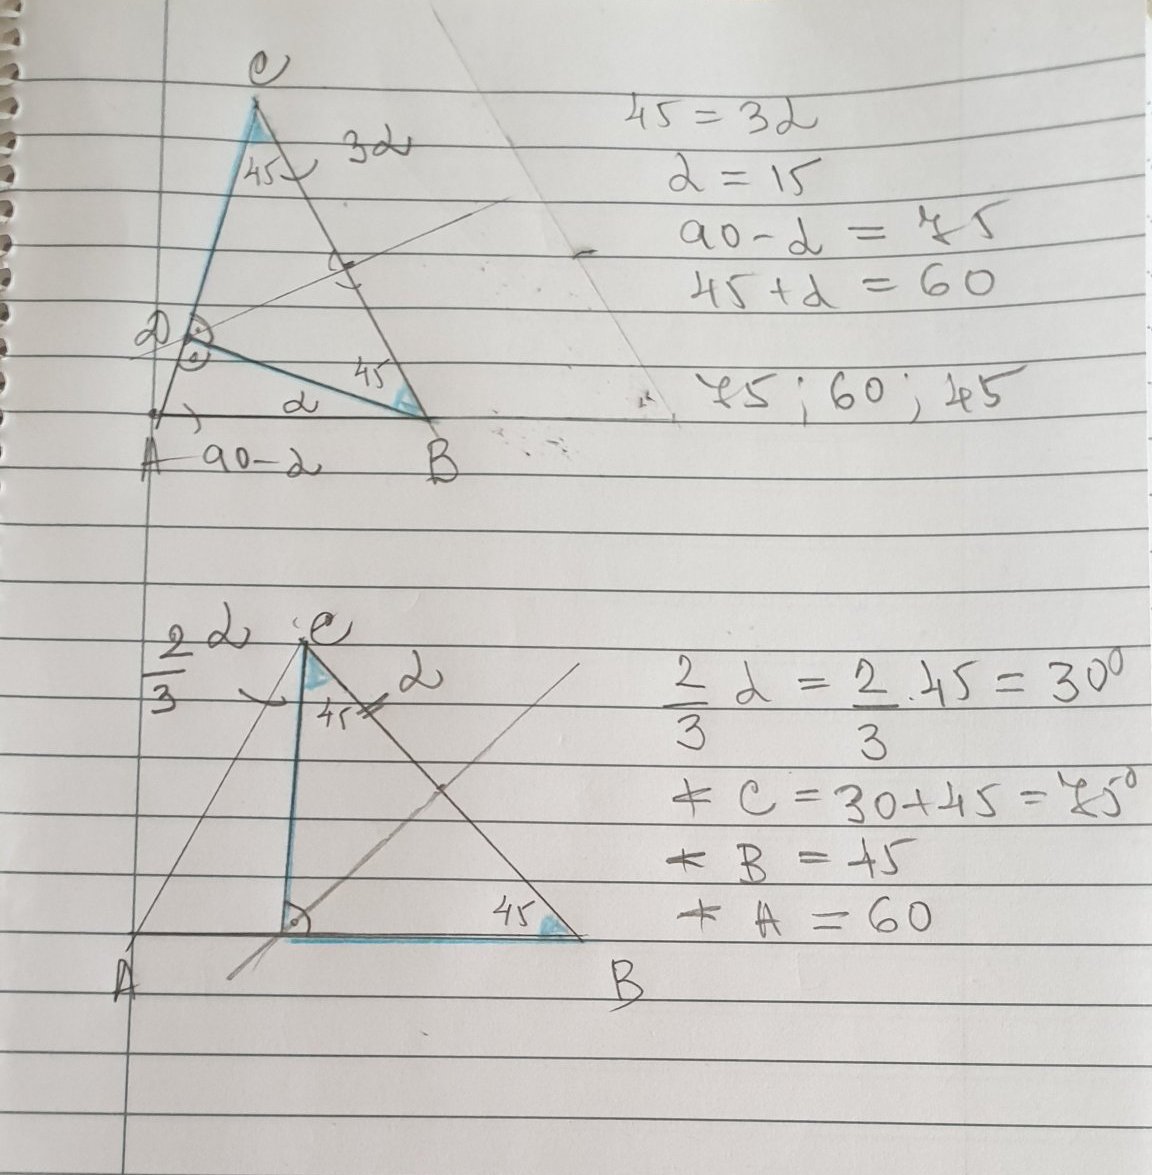 C
45 3α
D
45
α
A 90-α B
45 = 3α
α = 15
90-α = 75
45+α = 60
75; 60; 45
2/3 α C
45 α
45
A B
2/3 α = 2/3 . 45 = 30⁰
* C = 30+45 = 75⁰
* B = 45
* A = 60